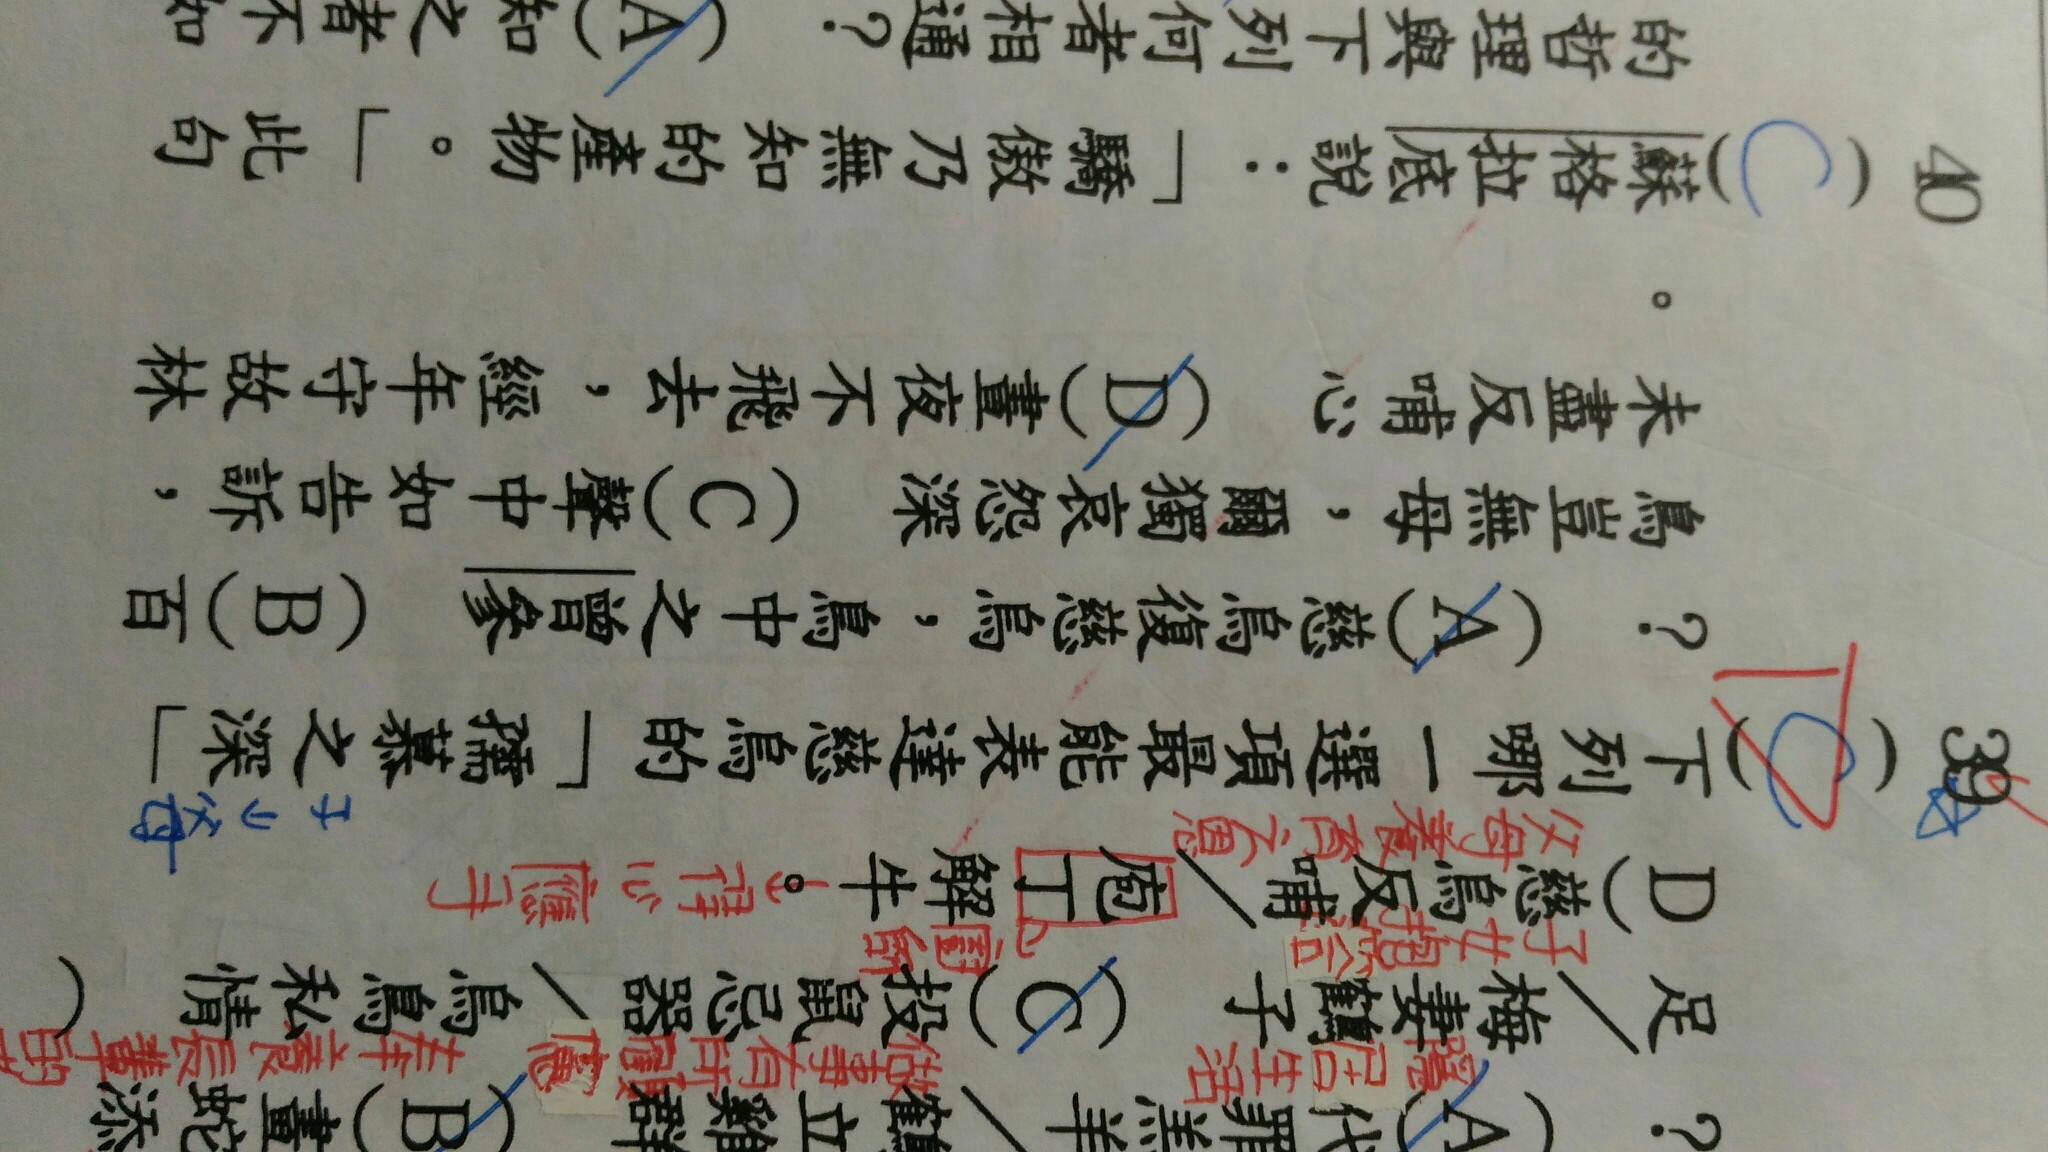 ？ (A)代罪羔羊／鶴立雞群 (B)畫蛇添
隱居生活
做事有所顧慮
奉養長輩的
足／梅妻鶴子 (C)投鼠忌器／烏鳥私情 (
子女報答
廚師
D)慈烏反哺／庖丁解牛。
父母養育之恩
得心應手
子 父母
39 ( )下列哪一選項最能表達慈烏的「孺慕之深」
？ (A)慈烏復慈烏，鳥中之曾參 (B)百
鳥豈無母，爾獨哀怨深 (C)聲中如告訴，
未盡反哺心 (D)晝夜不飛去，經年守故林
。
40 (C)蘇格拉底說：「驕傲乃無知的產物。」此句
的哲理與下列何者相通？ (A)知之者不如